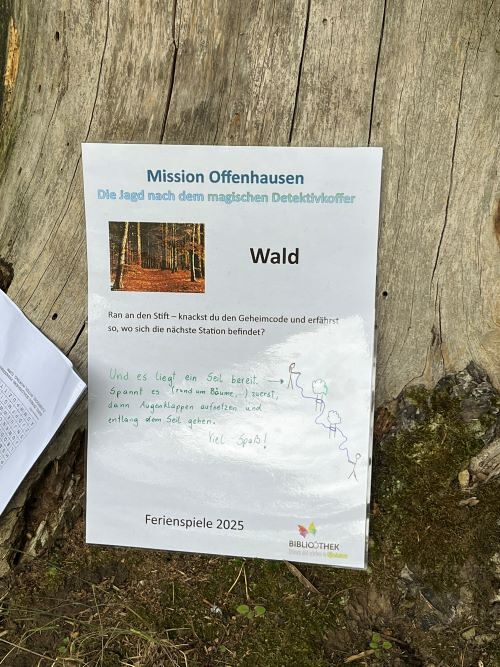 Mission Offenhausen
Die Jagd nach dem magischen Detektivkoffer
Wald
Ran an den Stift – knackst du den Geheimcode und erfährst
so, wo sich die nächste Station befindet?
Und es liegt ein Seil bereit.
Spannt es (rund um Bäume,..) zuerst,
dann Augenklappen aufsetzen und
entlang dem Seil gehen.
Viel Spaß!
Ferienspiele 2025
BIBLIOTHEK